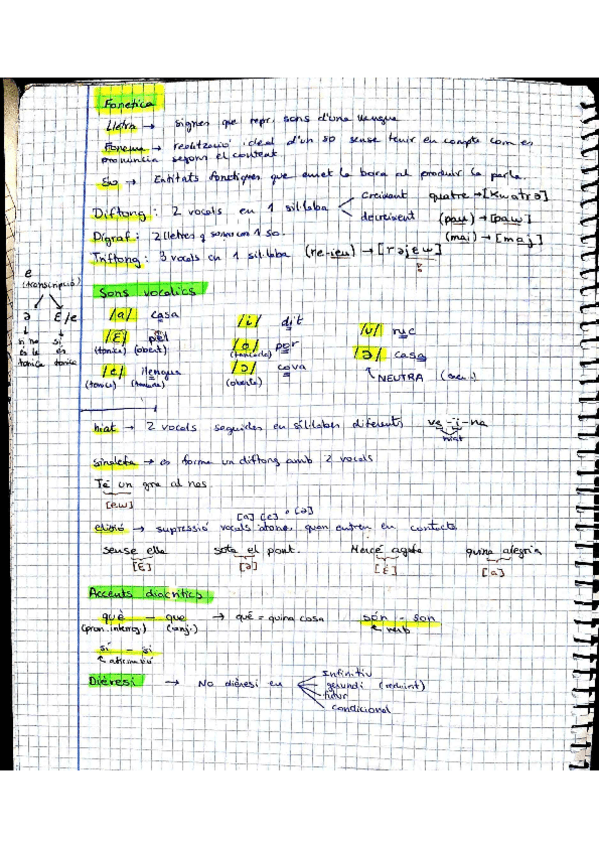 Fonètica
Lletra → signes que repr. sons d'una llengua
Fonema → realització ideal d'un so sense tenir en compte com es
pronuncia segons el context
So → Entitats fonètiques que emet la boca al produir la parla.
Diftong: 2 vocals en 1 síl·laba creixent quatre → [kwatrə]
decreixent (pau) → [paw]
(mai) → [maj]
Dígraf: 2 lletres q sonen 1 so.
Triftong: 3 vocals en 1 síl·laba (re-ieu) → [rəjew]
e
(transcripció)
ə ɛ/e
si no si
és la és
tònica tònica
Sons vocàlics
/a/ casa /i/ dit /u/ ruc
/ɛ/ pèl /o/ por /ə/ casa
(tònica) (obert) (tancada) NEUTRA
/e/ llengua /ɔ/ cova
(tònica) (tancada) (oberta)
hiat → 2 vocals seguides en síl·labes diferents ve-i-na
hiat
sinalefa → es forma un diftong amb 2 vocals
Té un gra al nas.
[ew]
[a] [e] o [ə]
elisió → supressió vocals àtones, quan entren en contacte
sense ella sota el pont. Mercé agafa quina alegria
[ɛ] [ə] [é] [a]
Accents diacrítics
què - que → què = quina cosa són - son
(pron. interrog) (conj.) verb
sí - si
afirmació
Dièresi → No dièresi en Infinitiu
gerundi (reduint)
futur
condicional